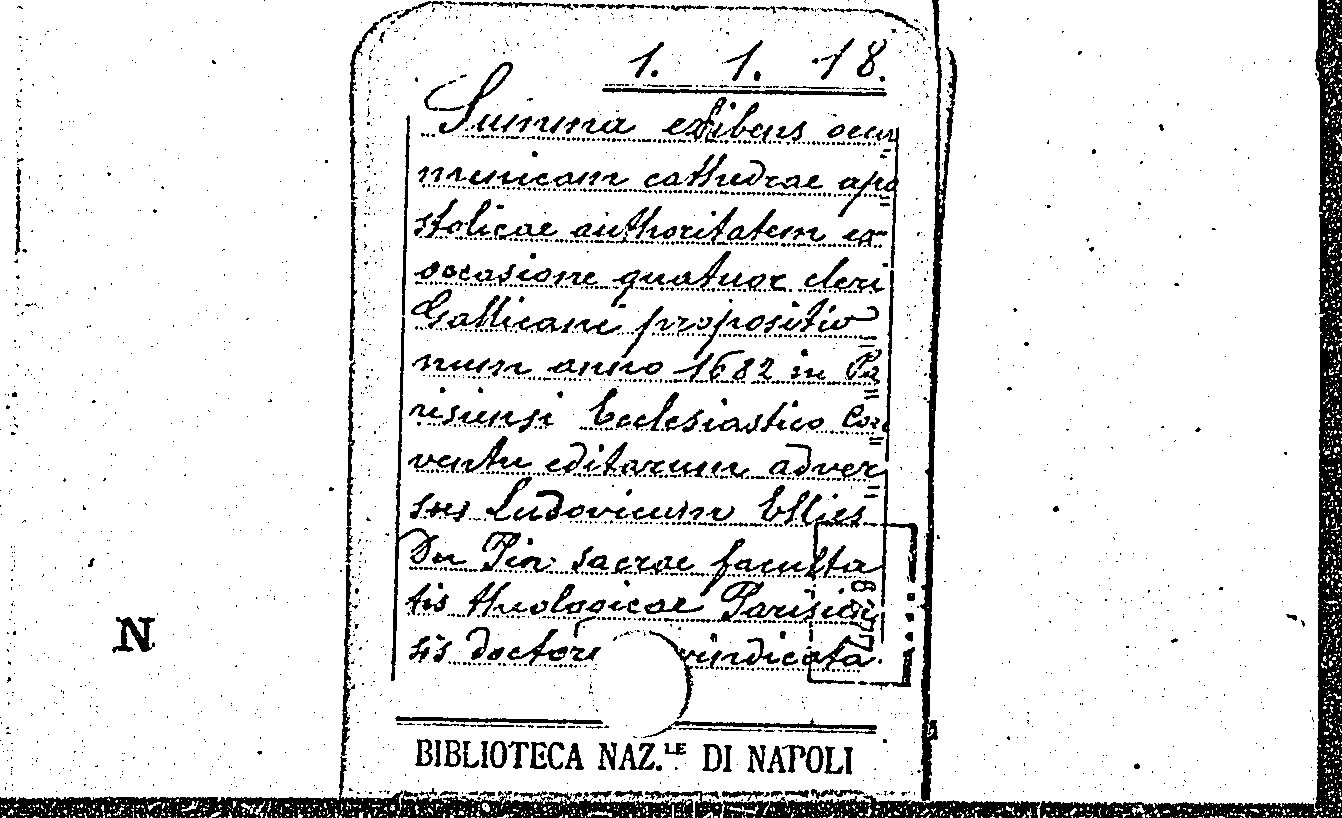 1. 1. 18.
Summa exibens oecu
menicam cathedrae apo
stolicae authoritatem ex
occasione quatuor cleri
Gallicani propositio
num anno 1682 in Pa
risiensi Ecclesiastico Con
ventu editarum adver
sus Ludovicum Ellies
Du Pin sacrae faculta
tis theologicae Parisien
sis doctore vindicata.
N
BIBLIOTECA NAZ.LE DI NAPOLI